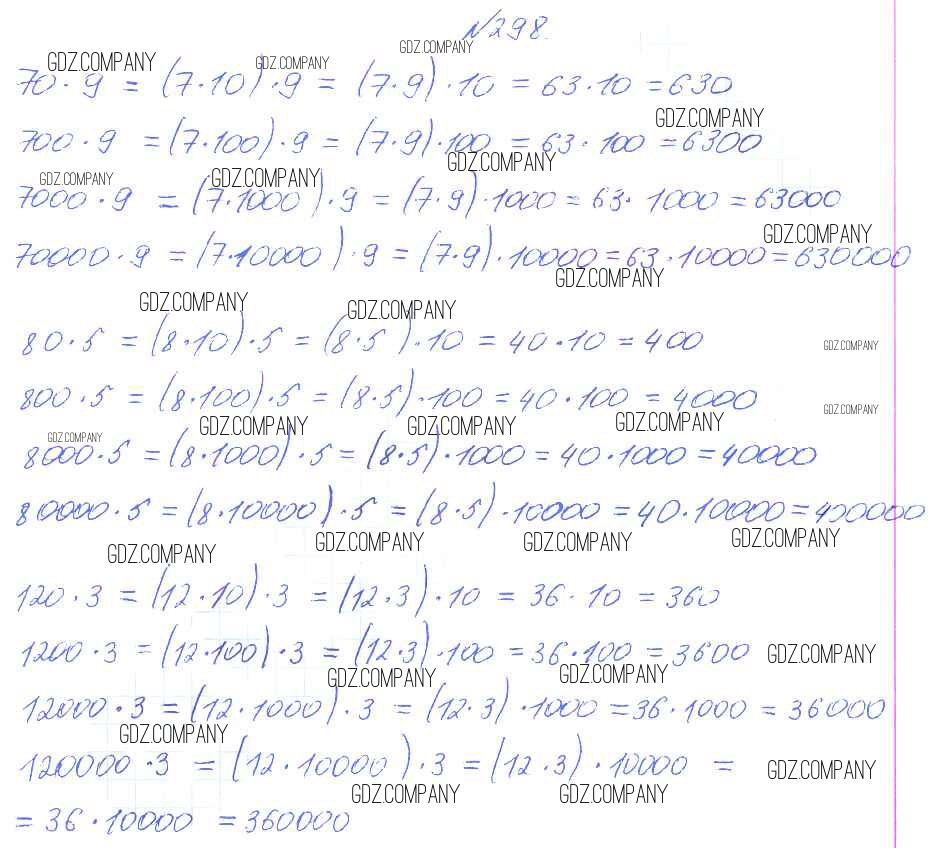 №298.
GDZ.COMPANY GDZ.COMPANY GDZ.COMPANY
70·9 = (7·10)·9 = (7·9)·10 = 63·10 = 630
GDZ.COMPANY
700·9 = (7·100)·9 = (7·9)·100 = 63·100 = 6300
GDZ.COMPANY GDZ.COMPANY GDZ.COMPANY
7000·9 = (7·1000)·9 = (7·9)·1000 = 63·1000 = 63000
GDZ.COMPANY
70000·9 = (7·10000)·9 = (7·9)·10000 = 63·10000 = 630000
GDZ.COMPANY
GDZ.COMPANY GDZ.COMPANY
80·5 = (8·10)·5 = (8·5)·10 = 40·10 = 400
GDZ.COMPANY
800·5 = (8·100)·5 = (8·5)·100 = 40·100 = 4000
GDZ.COMPANY
GDZ.COMPANY GDZ.COMPANY GDZ.COMPANY GDZ.COMPANY
8000·5 = (8·1000)·5 = (8·5)·1000 = 40·1000 = 40000
80000·5 = (8·10000)·5 = (8·5)·10000 = 40·10000 = 400000
GDZ.COMPANY GDZ.COMPANY GDZ.COMPANY GDZ.COMPANY
120·3 = (12·10)·3 = (12·3)·10 = 36·10 = 360
1200·3 = (12·100)·3 = (12·3)·100 = 36·100 = 3600 GDZ.COMPANY
GDZ.COMPANY GDZ.COMPANY
12000·3 = (12·1000)·3 = (12·3)·1000 = 36·1000 = 36000
GDZ.COMPANY
120000·3 = (12·10000)·3 = (12·3)·10000 = GDZ.COMPANY
GDZ.COMPANY GDZ.COMPANY
= 36·10000 = 360000